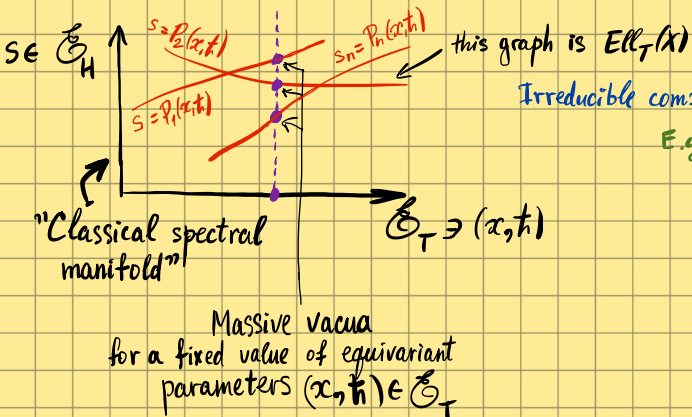 s = P₂(x,ħ)
sₙ = Pₙ(x,ħ)
s ∈ ℰ_H
this graph is Ell_T(X)
Irreducible com
s = P₁(x,ħ)
E.g
ℰ_T ∋ (x,ħ)
"Classical spectral
manifold"
Massive vacua
for a fixed value of equivariant
parameters (x,ħ) ∈ ℰ_T